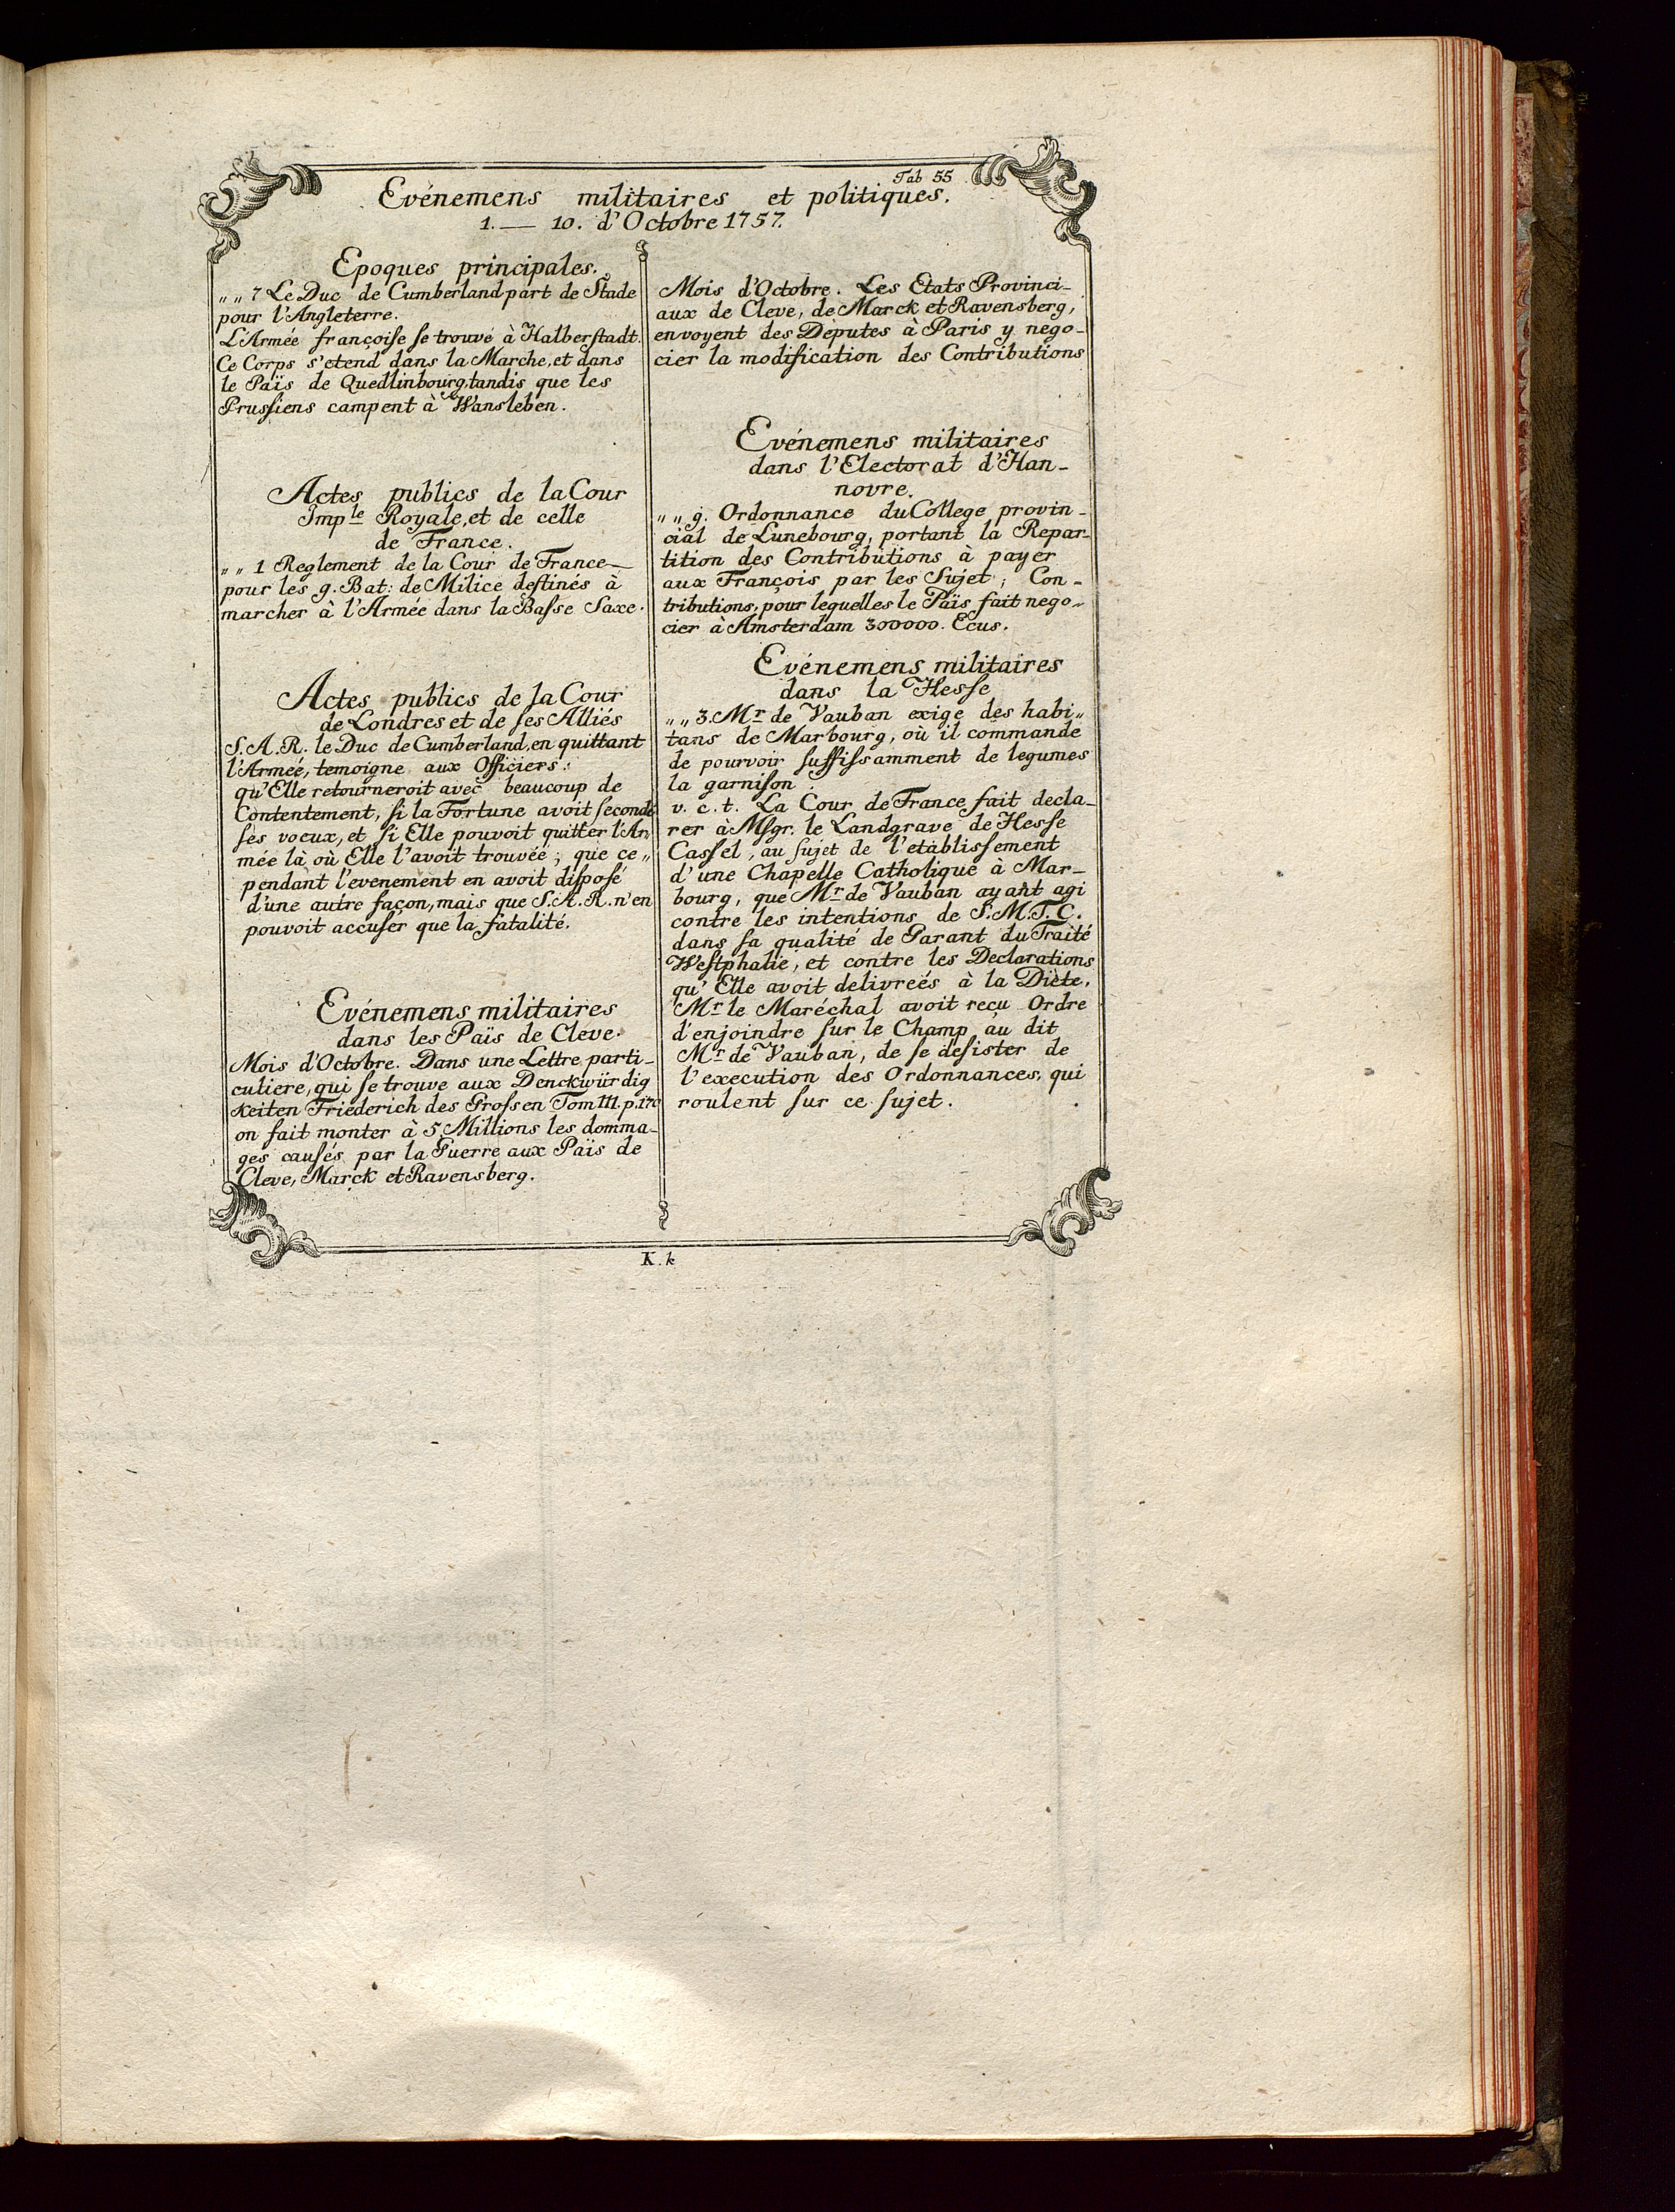 Tab 55
Evénemens militaires et politiques.
1. — 10. d'Octobre 1757.
Epoques principales.
„ „ 7 Le Duc de Cumberland part de Stade
pour l'Angleterre.
L'Armée françoiſe ſe trouve à Halberſtadt.
Ce Corps s'etend dans la Marche, et dans
le Païs de Quedlinbourg, tandis que les
Pruſſiens campent à Wansleben.
Actes publics de la Cour
Imp.le Royale, et de celle
de France.
„ „ 1 Reglement de la Cour de France —
pour les 9. Bat: de Milice deſtinés à
marcher à l'Armée dans la Baſse Saxe.
Actes publics de la Cour
de Londres et de ſes Alliés
S. A. R. le Duc de Cumberland, en quittant
l'Armeé, temoigne aux Officiers:
qu'Elle retourneroit avec beaucoup de
Contentement, ſi la Fortune avoit ſecondé
ſes voeux, et ſi Elle pouvoit quitter l'Ar
mée là où Elle l'avoit trouvée; que ce„
pendant l'evenement en avoit diſpoſé
d'une autre façon, mais que S. A. R. n'en
pouvoit accuſer que la fatalité.
Evénemens militaires
dans les Païs de Cleve.
Mois d'Octobre. Dans une Lettre parti-
culiere, qui ſe trouve aux Denckwürdig
keiten Friederich des Groſsen Tom III. p. 170
on fait monter à 5 Millions les domma-
ges cauſés par la Guerre aux Païs de
Cleve, Marck et Ravensberg.
Mois d'Octobre. Les Etats Provinci-
aux de Cleve, de Marck et Ravensberg,
envoyent des Députes à Paris y nego-
cier la modification des Contributions
Evénemens militaires
dans l'Electorat d'Han-
novre.
„ „ 9. Ordonnance du College provin-
cial de Lunebourg, portant la Repar-
tition des Contributions à payer
aux François par les Sujet; Con-
tributions, pour lequelles le Païs fait nego-
cier à Amsterdam 300000. Ecus.
Evénemens militaires
dans la Heſſe
„ „ 3. Mr. de Vauban exige des habi„
tans de Marbourg, où il commande
de pourvoir ſuffiſsamment de legumes
la garniſon.
v. c. t. La Cour de France fait decla-
rer à Mſgr. le Landgrave de Heſſe
Caſſel, au ſujet de l'etabliſſement
d'une Chapelle Catholique à Mar-
bourg, que Mr. de Vauban ayant agi
contre les intentions de S. M. T. C.
dans ſa qualité de Garant du Traité
Weſtphalie, et contre les Declarations
qu'Elle avoit delivreés à la Diète,
Mr. le Maréchal avoit reçu Ordre
d'enjoindre ſur le Champ au dit
Mr. de Vauban, de ſe deſister de
l'execution des Ordonnances, qui
roulent ſur ce ſujet.
K. k